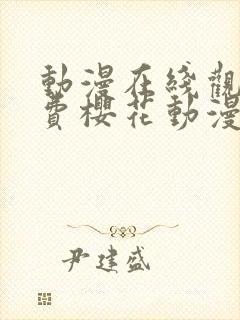 動漫在綫觀
費櫻花動漫
尹建盛